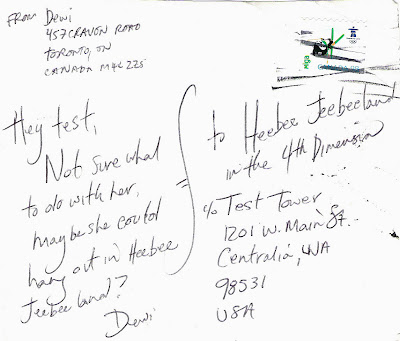 From Dewi
457 CRAVEN ROAD
TORONTO, ON
CANADA M4L 2Z5
Hey test,
Not sure what
to do with her,
maybe she could
hang out in Heebee
Jeebee land?
Dewi
to Heebee Jeebeeland
in the 4th Dimension
c/o Test Tower
1201 W. Main St.
Centralia, WA
98531
USA